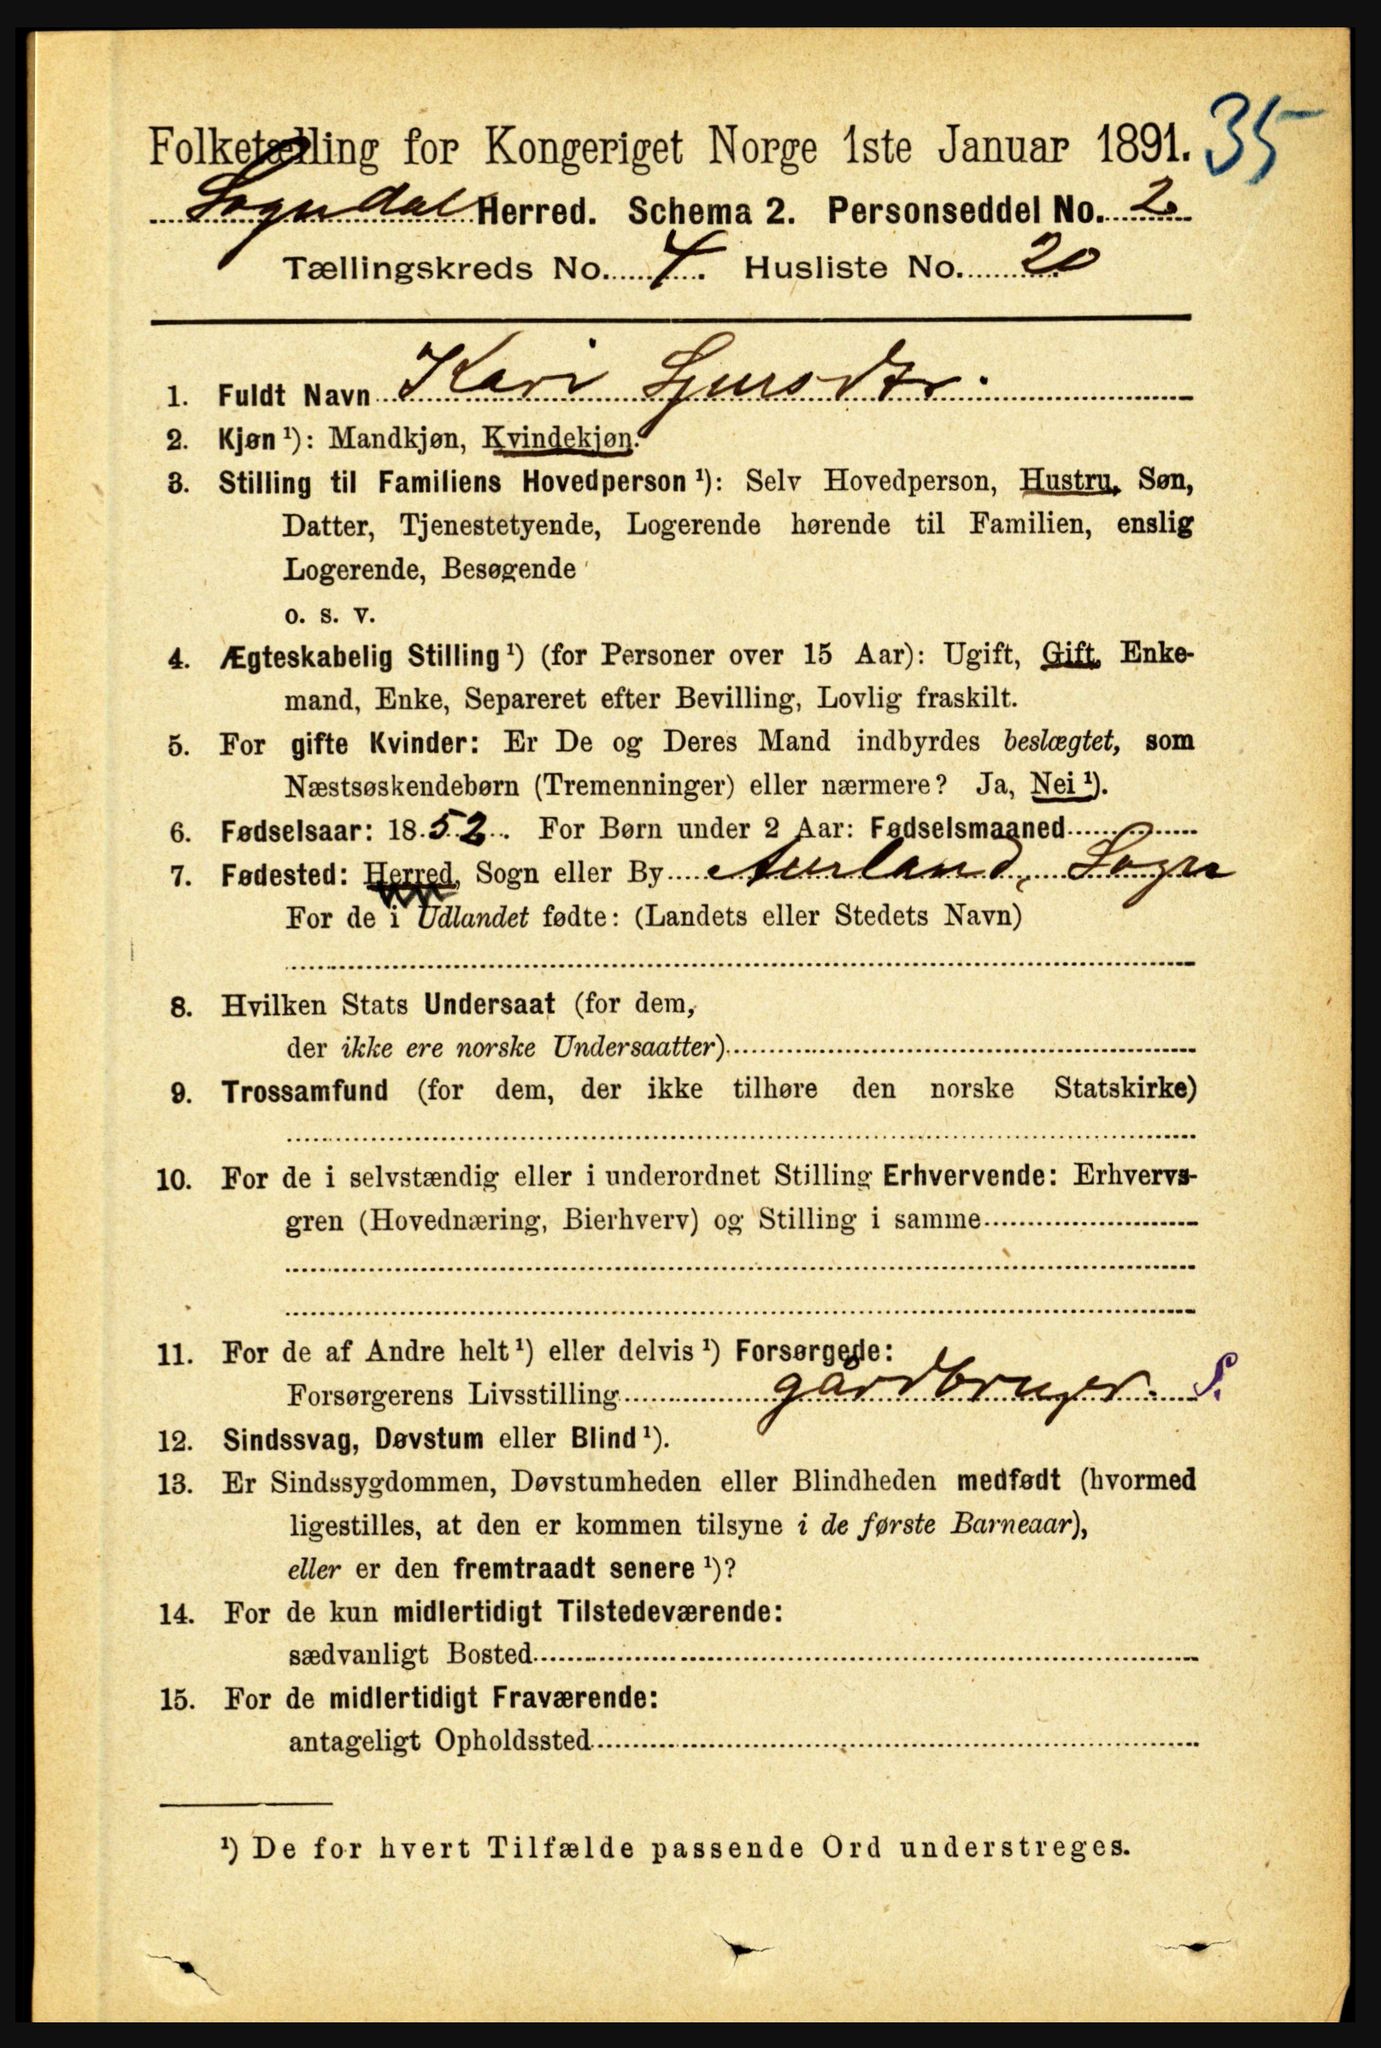 35
Folketælling for Kongeriget Norge 1ste Januar 1891.
Sogndal Herred. Schema 2. Personseddel No. 2
Tællingskreds No. 4. Husliste No. 20
1. Fuldt Navn Kari Sjursdtr.
2. Kjøn ¹): Mandkjøn, Kvindekjøn.
3. Stilling til Familiens Hovedperson ¹): Selv Hovedperson, Hustru, Søn,
Datter, Tjenestetyende, Logerende hørende til Familien, enslig
Logerende, Besøgende
o. s. v.
4. Ægteskabelig Stilling ¹) (for Personer over 15 Aar): Ugift, Gift, Enke-
mand, Enke, Separeret efter Bevilling, Lovlig fraskilt.
5. For gifte Kvinder: Er De og Deres Mand indbyrdes beslægtet, som
Næstsøskendebørn (Tremenninger) eller nærmere? Ja, Nei ¹).
6. Fødselsaar: 1852. For Børn under 2 Aar: Fødselsmaaned
7. Fødested: Herred, Sogn eller By Aurland, Sogn
For de i Udlandet fødte: (Landets eller Stedets Navn)
8. Hvilken Stats Undersaat (for dem,
der ikke ere norske Undersaatter)
9. Trossamfund (for dem, der ikke tilhøre den norske Statskirke)
10. For de i selvstændig eller i underordnet Stilling Erhvervende: Erhvervs-
gren (Hovednæring, Bierhverv) og Stilling i samme
11. For de af Andre helt ¹) eller delvis ¹) Forsørgede:
Forsørgerens Livsstilling gårdbruger. S.
12. Sindssvag, Døvstum eller Blind ¹).
13. Er Sindssygdommen, Døvstumheden eller Blindheden medfødt (hvormed
ligestilles, at den er kommen tilsyne i de første Barneaar),
eller er den fremtraadt senere ¹)?
14. For de kun midlertidigt Tilstedeværende:
sædvanligt Bosted
15. For de midlertidigt Fraværende:
antageligt Opholdssted
¹) De for hvert Tilfælde passende Ord understreges.